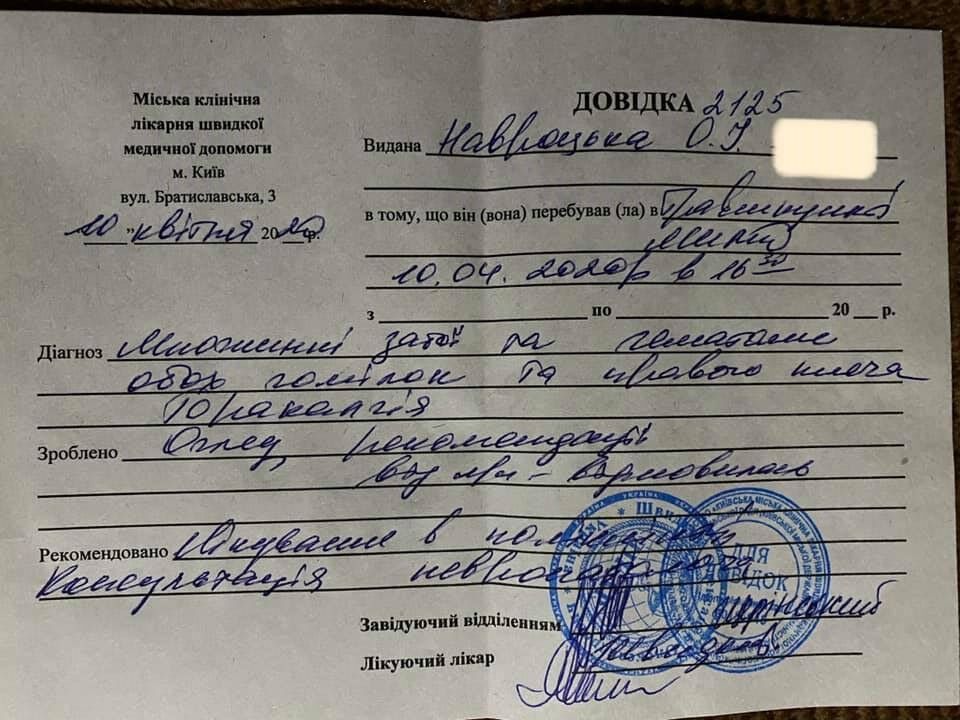 Міська клінічна
лікарня швидкої
медичної допомоги
м. Київ
вул. Братиславська, 3
"10" квітня 2020 р.
ДОВІДКА 2125
Видана Навроцька О.І.
в тому, що він (вона) перебував (ла) в
10.04.2020р в 16 30
з по 20 р.
Діагноз Множинні та гематоми
обох гомілок та правого плеча
Торакалгія
Зроблено Огляд, рекомендації
від - відмовилась
Рекомендовано Лікування в
Консультація
Завідуючий відділенням
Лікуючий лікар
ДЛЯ
ДОВІДОК
УКРАЇНА